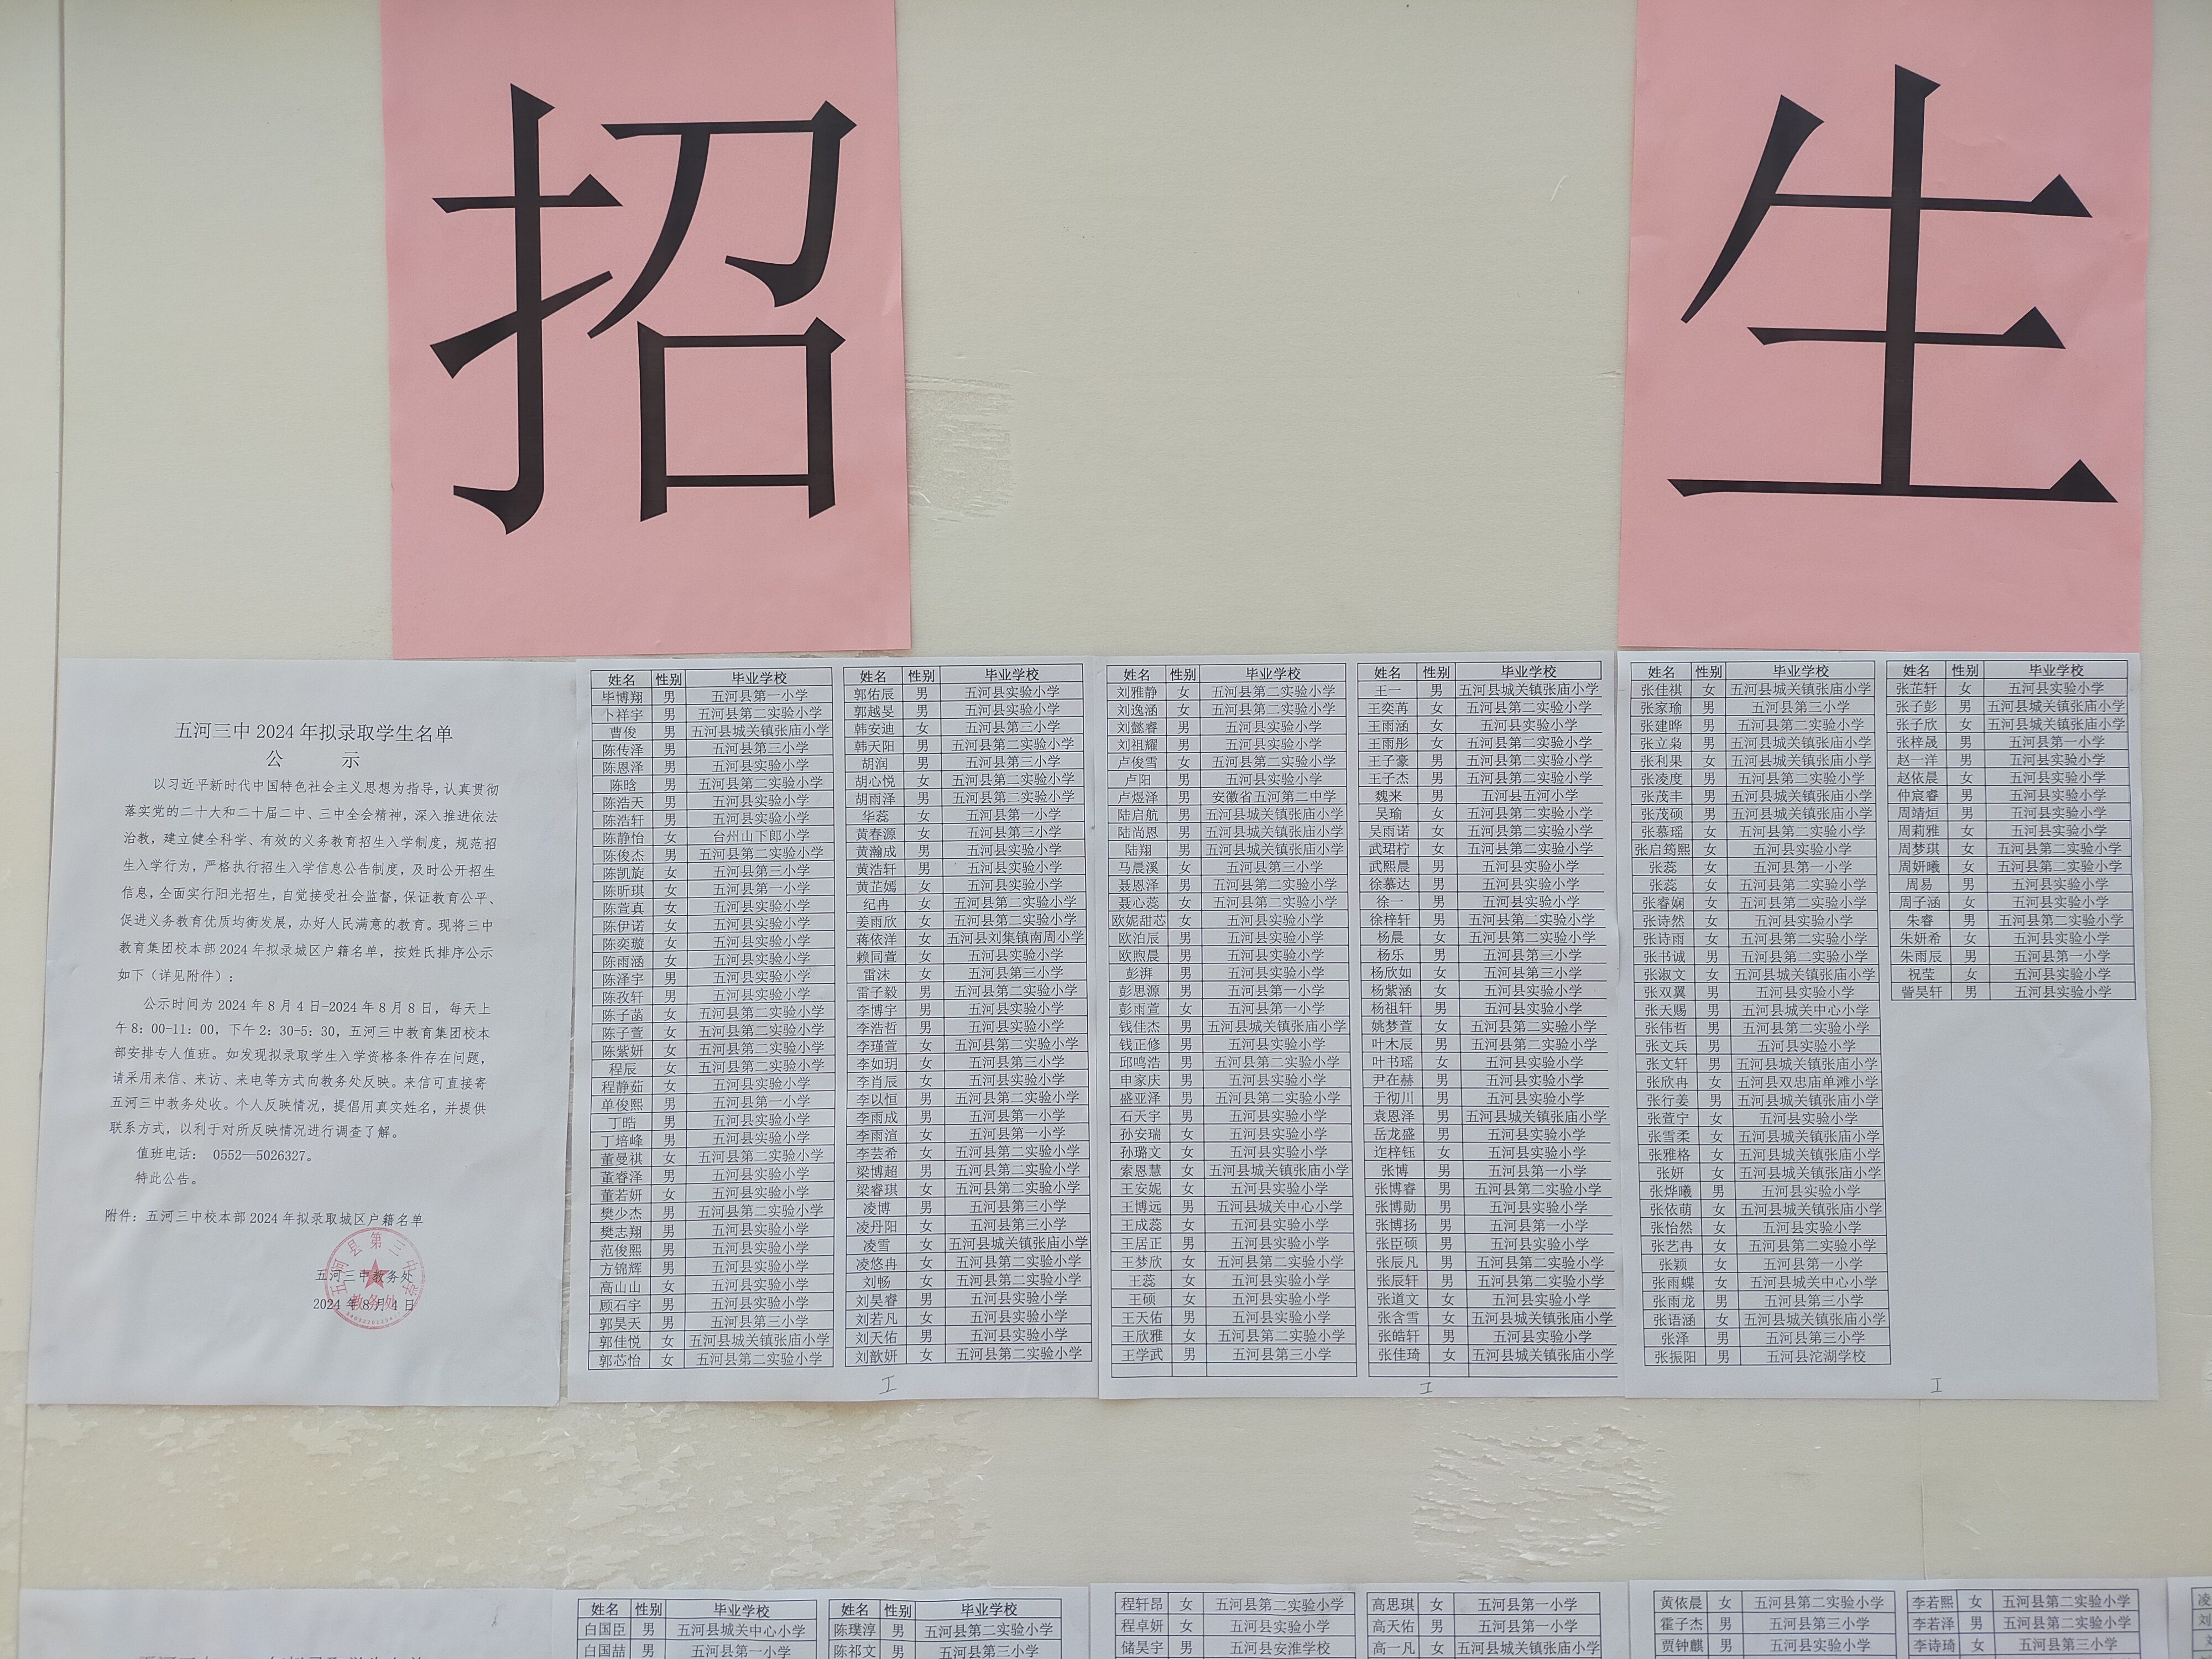 招 生
五河三中 2024 年拟录取学生名单
公 示
以习近平新时代中国特色社会主义思想为指导，认真贯彻
落实党的二十大和二十届二中、三中全会精神，深入推进依法
治教，建立健全科学、有效的义务教育招生入学制度，规范招
生入学行为，严格执行招生入学信息公告制度，及时公开招生
信息，全面实行阳光招生，自觉接受社会监督，保证教育公平、
促进义务教育优质均衡发展，办好人民满意的教育。现将三中
教育集团校本部 2024 年拟录城区户籍名单，按姓氏排序公示
如下（详见附件）：
公示时间为 2024 年 8 月 4 日-2024 年 8 月 8 日，每天上
午 8：00-11：00，下午 2：30-5：30，五河三中教育集团校本
部安排专人值班。如发现拟录取学生入学资格条件存在问题，
请采用来信、来访、来电等方式向教务处反映。来信可直接寄
五河三中教务处收。个人反映情况，提倡用真实姓名，并提供
联系方式，以利于对所反映情况进行调查了解。
值班电话： 0552—5026327。
特此公告。
附件：五河三中校本部 2024 年拟录取城区户籍名单
五河三中教务处
2024 年 8 月 4 日
五河县第三中学
教务处
姓名 性别 毕业学校
毕博翔 男 五河县第一小学
卜祥宇 男 五河县第二实验小学
曹俊 男 五河县城关镇张庙小学
陈传泽 男 五河县第三小学
陈恩泽 男 五河县实验小学
陈晗 男 五河县第二实验小学
陈浩天 男 五河县实验小学
陈浩轩 男 五河县实验小学
陈静怡 女 台州山下郎小学
陈俊杰 男 五河县第二实验小学
陈凯旋 女 五河县第三小学
陈昕琪 女 五河县第一小学
陈萱真 女 五河县第二实验小学
陈伊诺 女 五河县实验小学
陈奕璇 女 五河县实验小学
陈雨涵 女 五河县实验小学
陈泽宇 男 五河县实验小学
陈孜轩 男 五河县实验小学
陈子菡 女 五河县第二实验小学
陈子萱 女 五河县第二实验小学
陈紫妍 女 五河县第二实验小学
程辰 女 五河县第二实验小学
程静茹 女 五河县实验小学
单俊熙 男 五河县第一小学
丁晧 男 五河县实验小学
丁培峰 男 五河县实验小学
董曼祺 女 五河县第二实验小学
董睿泽 男 五河县实验小学
董若妍 女 五河县实验小学
樊少杰 男 五河县第二实验小学
樊志翔 男 五河县实验小学
范俊熙 男 五河县实验小学
方锦辉 男 五河县实验小学
高山山 女 五河县实验小学
顾石宇 男 五河县实验小学
郭昊天 男 五河县第三小学
郭佳悦 女 五河县城关镇张庙小学
郭芯怡 女 五河县第二实验小学
姓名 性别 毕业学校
郭佑辰 男 五河县实验小学
郭越旻 男 五河县实验小学
韩安迪 女 五河县第三小学
韩天阳 男 五河县第二实验小学
胡润 男 五河县第三小学
胡心悦 女 五河县第二实验小学
胡雨泽 男 五河县第二实验小学
华蕊 女 五河县第一小学
黄春源 女 五河县第三小学
黄瀚成 男 五河县实验小学
黄浩轩 男 五河县实验小学
黄芷嫣 女 五河县实验小学
纪冉 女 五河县第二实验小学
姜雨欣 女 五河县第二实验小学
蒋依洋 女 五河县刘集镇南周小学
赖同萱 女 五河县实验小学
雷沫 女 五河县第三小学
雷子毅 男 五河县第二实验小学
李博宇 男 五河县实验小学
李浩哲 男 五河县实验小学
李瑾萱 女 五河县第二实验小学
李如玥 女 五河县第三小学
李肖辰 女 五河县实验小学
李以恒 男 五河县第二实验小学
李雨成 男 五河县第一小学
李雨渲 女 五河县第一小学
李芸希 女 五河县第二实验小学
梁博超 男 五河县实验小学
梁睿琪 女 五河县第二实验小学
凌博 男 五河县第三小学
凌丹阳 女 五河县第三小学
凌雪 女 五河县城关镇张庙小学
凌悠冉 女 五河县第二实验小学
刘畅 女 五河县第二实验小学
刘昊睿 男 五河县实验小学
刘若凡 女 五河县实验小学
刘天佑 男 五河县实验小学
刘歆妍 女 五河县第二实验小学
姓名 性别 毕业学校
刘雅静 女 五河县第二实验小学
刘逸涵 女 五河县第二实验小学
刘懿睿 男 五河县实验小学
刘祖耀 男 五河县实验小学
卢俊雪 女 五河县第二实验小学
卢阳 男 五河县实验小学
卢煜泽 男 安徽省五河第二中学
陆启航 男 五河县城关镇张庙小学
陆尚恩 男 五河县城关镇张庙小学
陆翔 男 五河县城关镇张庙小学
马晨溪 女 五河县第三小学
聂恩泽 男 五河县第二实验小学
聂心蕊 女 五河县第二实验小学
欧妮甜芯 女 五河县实验小学
欧泊辰 男 五河县实验小学
欧煦晨 男 五河县实验小学
彭湃 男 五河县实验小学
彭思源 男 五河县第一小学
彭雨萱 女 五河县第一小学
钱佳杰 男 五河县城关镇张庙小学
钱正修 男 五河县实验小学
邱鸣浩 男 五河县第二实验小学
申家庆 男 五河县实验小学
盛亚泽 男 五河县第二实验小学
石天宇 男 五河县实验小学
孙安瑞 女 五河县实验小学
孙璐文 女 五河县实验小学
索恩慧 女 五河县城关镇张庙小学
王安妮 女 五河县实验小学
王博远 男 五河县城关中心小学
王成蕊 女 五河县实验小学
王居正 男 五河县实验小学
王梦欣 女 五河县第二实验小学
王蕊 女 五河县实验小学
王硕 女 五河县实验小学
王天佑 男 五河县实验小学
王欣雅 女 五河县第二实验小学
王学武 男 五河县第三小学
姓名 性别 毕业学校
王一 男 五河县城关镇张庙小学
王奕苒 女 五河县第二实验小学
王雨涵 女 五河县实验小学
王雨彤 女 五河县第二实验小学
王子豪 男 五河县第二实验小学
王子杰 男 五河县第二实验小学
魏来 男 五河县五河小学
吴瑜 女 五河县第二实验小学
吴雨诺 女 五河县第二实验小学
武珺柠 女 五河县第二实验小学
武熙晨 男 五河县实验小学
徐慕达 男 五河县实验小学
徐一 男 五河县实验小学
徐梓轩 男 五河县第二实验小学
杨晨 女 五河县第二实验小学
杨乐 男 五河县第三小学
杨欣如 女 五河县第三小学
杨紫涵 女 五河县实验小学
杨祖轩 男 五河县实验小学
姚梦萱 女 五河县第二实验小学
叶木辰 男 五河县第二实验小学
叶书瑶 女 五河县实验小学
尹在赫 男 五河县实验小学
于彻川 男 五河县实验小学
袁恩泽 男 五河县城关镇张庙小学
岳龙盛 男 五河县实验小学
迮梓钰 女 五河县实验小学
张博 男 五河县第一小学
张博睿 男 五河县第二实验小学
张博勋 男 五河县实验小学
张博扬 男 五河县第一小学
张臣硕 男 五河县实验小学
张辰凡 男 五河县第二实验小学
张辰轩 男 五河县第二实验小学
张道文 女 五河县实验小学
张含雪 女 五河县城关镇张庙小学
张皓轩 男 五河县实验小学
张佳琦 女 五河县城关镇张庙小学
姓名 性别 毕业学校
张佳祺 女 五河县城关镇张庙小学
张家瑜 男 五河县第三小学
张建晔 男 五河县第二实验小学
张立枭 男 五河县城关镇张庙小学
张利果 女 五河县城关镇张庙小学
张凌度 男 五河县第二实验小学
张茂丰 男 五河县城关镇张庙小学
张茂硕 男 五河县城关镇张庙小学
张慕瑶 女 五河县第二实验小学
张启筠熙 女 五河县实验小学
张蕊 女 五河县第一小学
张蕊 女 五河县第二实验小学
张睿娴 女 五河县第二实验小学
张诗然 女 五河县实验小学
张诗雨 女 五河县第二实验小学
张书诚 男 五河县第二实验小学
张淑文 女 五河县城关镇张庙小学
张双翼 男 五河县实验小学
张天赐 男 五河县城关中心小学
张伟哲 男 五河县第二实验小学
张文兵 男 五河县实验小学
张文轩 男 五河县城关镇张庙小学
张欣冉 女 五河县双忠庙单滩小学
张行姜 男 五河县城关镇张庙小学
张萱宁 女 五河县实验小学
张雪柔 女 五河县城关镇张庙小学
张雅格 女 五河县城关镇张庙小学
张妍 女 五河县城关镇张庙小学
张烨曦 男 五河县实验小学
张依萌 女 五河县城关镇张庙小学
张怡然 女 五河县实验小学
张艺冉 女 五河县第二实验小学
张颖 女 五河县第一小学
张雨蝶 女 五河县城关中心小学
张雨龙 男 五河县第三小学
张语涵 女 五河县城关镇张庙小学
张泽 男 五河县第三小学
张振阳 男 五河县沱湖学校
姓名 性别 毕业学校
张芷轩 女 五河县实验小学
张子彭 男 五河县城关镇张庙小学
张子欣 女 五河县城关镇张庙小学
张梓晟 男 五河县第一小学
赵一洋 男 五河县实验小学
赵依晨 女 五河县第二实验小学
仲宸睿 男 五河县实验小学
周靖烜 男 五河县实验小学
周莉雅 女 五河县实验小学
周梦琪 女 五河县第二实验小学
周妍曦 女 五河县第二实验小学
周易 男 五河县实验小学
周子涵 女 五河县实验小学
朱睿 男 五河县第二实验小学
朱妍希 女 五河县实验小学
朱雨辰 男 五河县第一小学
祝莹 女 五河县实验小学
訾昊轩 男 五河县实验小学
姓名 性别 毕业学校
白国臣 男 五河县城关中心小学
白国喆 男 五河县第一小学
姓名 性别 毕业学校
陈璞淳 男 五河县第二实验小学
陈祁文 男 五河县第三小学
程轩昂 女 五河县第二实验小学
程卓妍 女 五河县实验小学
储昊宇 男 五河县安淮学校
高思琪 女 五河县第一小学
高天佑 男 五河县实验小学
高一凡 女 五河县城关镇张庙小学
黄依晨 女 五河县第二实验小学
霍子杰 男 五河县第三小学
贾钟麒 男 五河县实验小学
李若熙 女 五河县第二实验小学
李若泽 男 五河县第二实验小学
李诗琦 女 五河县第三小学